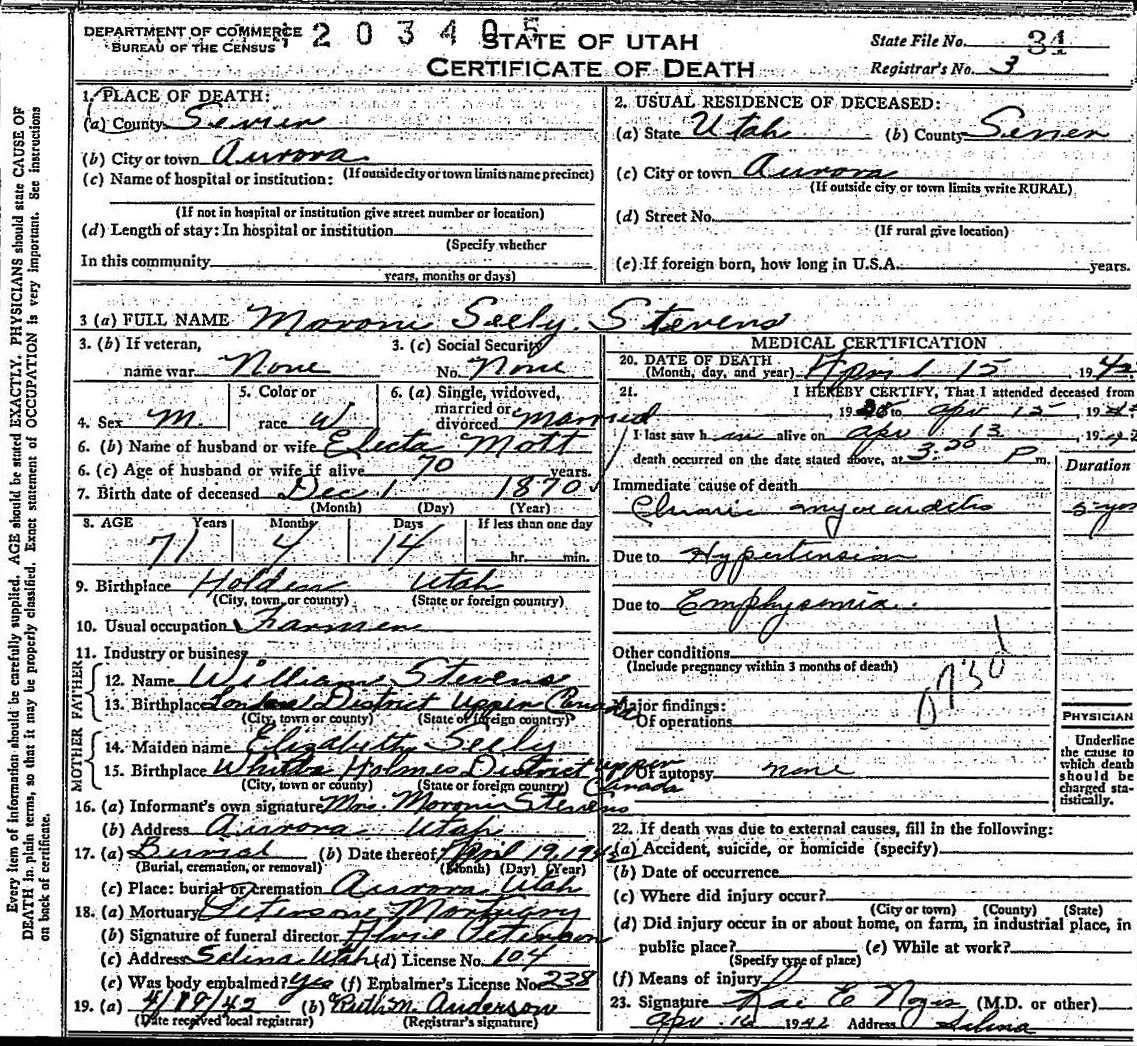 Every item of information should be carefully supplied. AGE should be stated EXACTLY. PHYSICIANS should state CAUSE OF
DEATH in plain terms, so that it may be properly classified. Exact statement of OCCUPATION is very important. See instructions
on back of certificate.
DEPARTMENT OF COMMERCE
BUREAU OF THE CENSUS
203405
STATE OF UTAH
CERTIFICATE OF DEATH
State File No. 31
Registrar's No. 3
1. PLACE OF DEATH:
(a) County Sevier
(b) City or town Aurora
(If outside city or town limits name precinct)
(c) Name of hospital or institution:
(If not in hospital or institution give street number or location)
(d) Length of stay: In hospital or institution
(Specify whether
In this community
years, months or days)
2. USUAL RESIDENCE OF DECEASED:
(a) State Utah (b) County Sevier
(c) City or town Aurora
(If outside city or town limits write RURAL)
(d) Street No.
(If rural give location)
(e) If foreign born, how long in U.S.A. years.
3 (a) FULL NAME Moroni Seely Stevens
3. (b) If veteran, 3. (c) Social Security
name war None No. None
4. Sex M. 5. Color or race W 6. (a) Single, widowed, married or divorced Married
6. (b) Name of husband or wife Electa Mott
6. (c) Age of husband or wife if alive 70 years.
7. Birth date of deceased Dec 1 1870
(Month) (Day) (Year)
8. AGE Years Months Days If less than one day
71 4 14 hr. min.
9. Birthplace Holden Utah
(City, town, or county) (State or foreign country)
10. Usual occupation Farmer
11. Industry or business
FATHER
12. Name William Stevens
13. Birthplace London District Upper Canada
(City, town or county) (State or foreign country)
MOTHER
14. Maiden name Elizabeth Seely
15. Birthplace Holmes District upper Canada
(City, town or county) (State or foreign country)
16. (a) Informant's own signature Mrs. Moroni Stevens
(b) Address Aurora Utah
17. (a) Burial (b) Date thereof April 19, 1942
(Burial, cremation, or removal) (Month) (Day) (Year)
(c) Place: burial or cremation Aurora Utah
18. (a) Mortuary Peterson Mortuary
(b) Signature of funeral director Peterson
(c) Address Salina Utah (d) License No. 104
(e) Was body embalmed? Yes (f) Embalmer's License No. 238
19. (a) 4/19/42 (b) Ruth M. Anderson
(Date received local registrar) (Registrar's signature)
MEDICAL CERTIFICATION
20. DATE OF DEATH
(Month, day, and year) April 15, 1942
21. I HEREBY CERTIFY, That I attended deceased from
19 to Apr 15 19
I last saw h im alive on Apr 13, 1942
death occurred on the date stated above, at 3:20 P m.
Immediate cause of death Duration
Chronic myocarditis 5 yrs
Due to Hypertension
Due to Emphysemia
Other conditions
(Include pregnancy within 3 months of death)
Major findings:
Of operations
Of autopsy none
PHYSICIAN
Underline
the cause to
which death
should be
charged sta-
tistically.
22. If death was due to external causes, fill in the following:
(a) Accident, suicide, or homicide (specify)
(b) Date of occurrence
(c) Where did injury occur?
(City or town) (County) (State)
(d) Did injury occur in or about home, on farm, in industrial place, in
public place? (e) While at work?
(Specify type of place)
(f) Means of injury
23. Signature Rae E Noyes (M.D. or other)
Apr. 16 1942 Address Salina